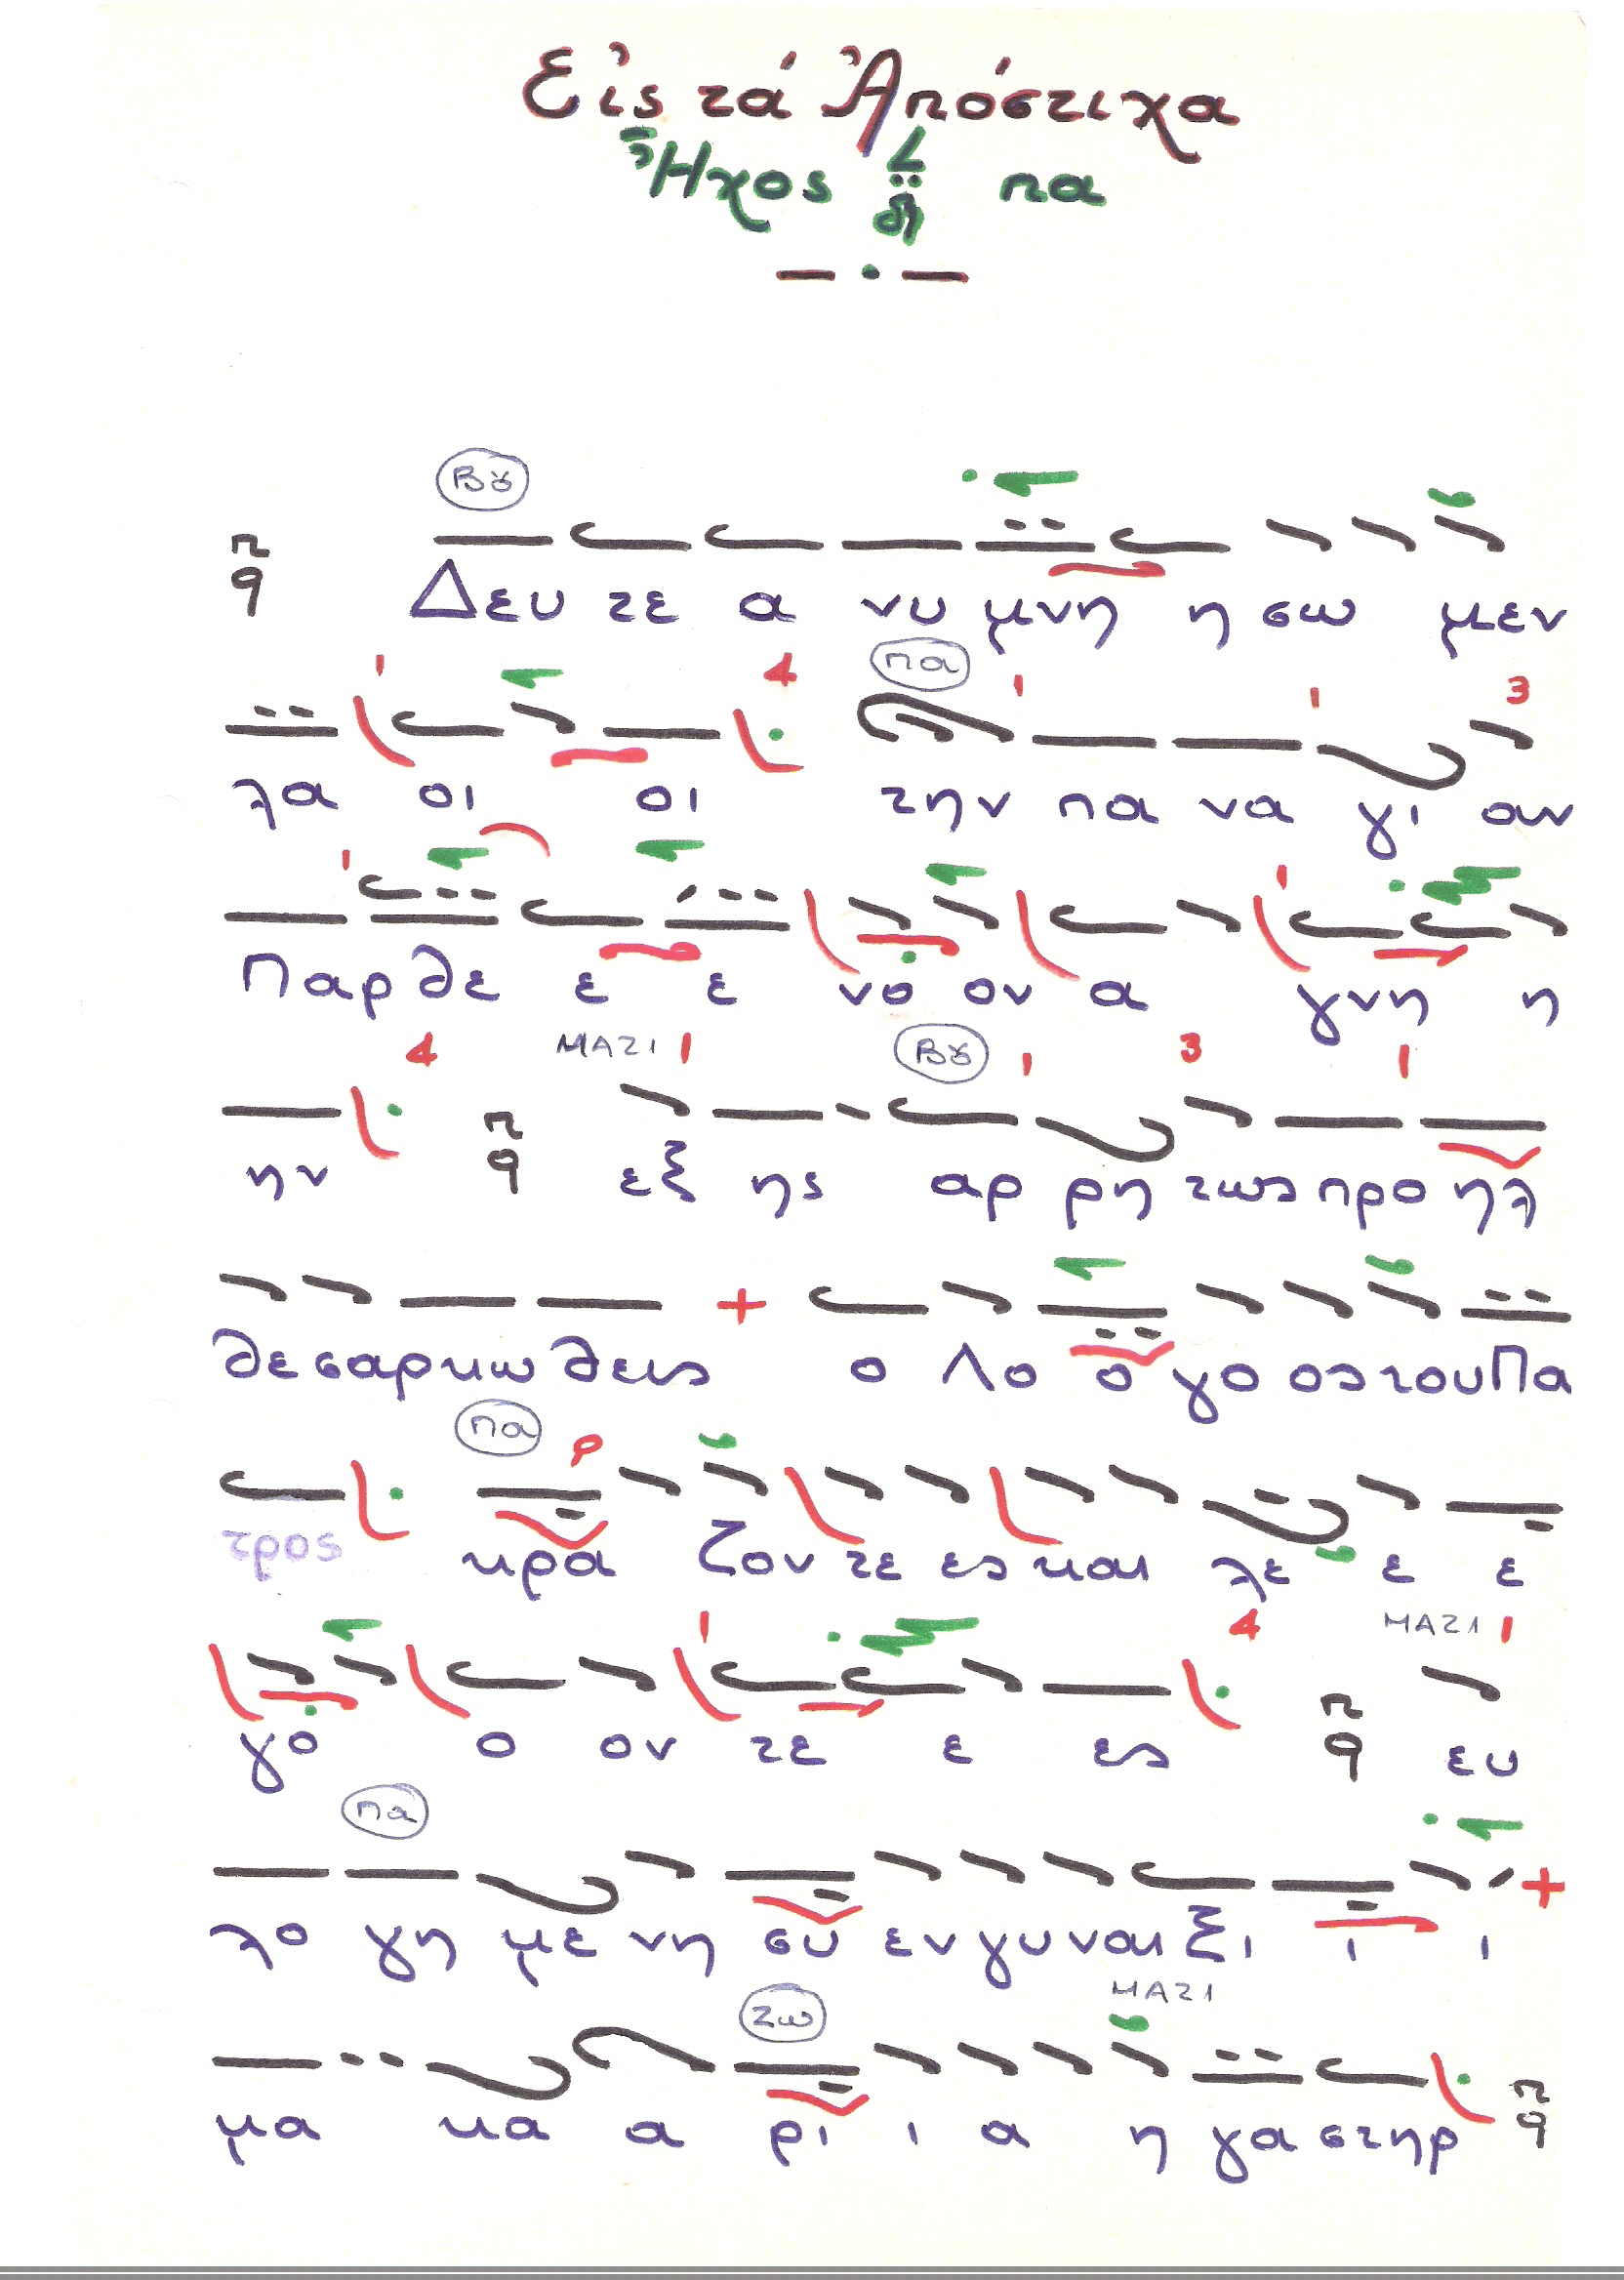 Εἰς τά Ἀπόστιχα
Ἦχος πα
Βȣ
Δευ τε α νυ μνη η σω μεν
πα
4 3
λα οι οι την πα να γι αν
Παρ θε ε ε νο ον α γνη η
4 ΜΑΖΙ Βȣ 3
ην εξ ης αρ ρη τως προ ηλ
θε σαρ κω θεις ο Λο ο γο ος του Πα
πα
τρος κρα ζον τε ες και λε ε ε
4 ΜΑΖΙ
γο ο ον τε ε ες ευ
πα
λο γη με νη συ εν γυ ναι ξι ι ι
ζω ΜΑΖΙ
μα κα α ρι ι α η γα στηρ